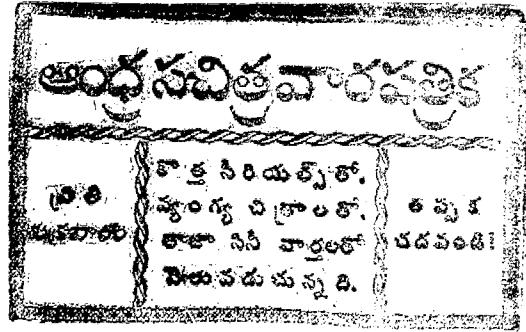 ఆంధ్ర సచిత్ర వార పత్రిక
ప్రతి
శుక్రవారం
కొత్త సీరియల్స్ తో.
వ్యంగ్య చిత్రాలతో.
తాజా సినీ వార్తలతో
వెలువడుచున్నది.
తప్పక
చదవండి!